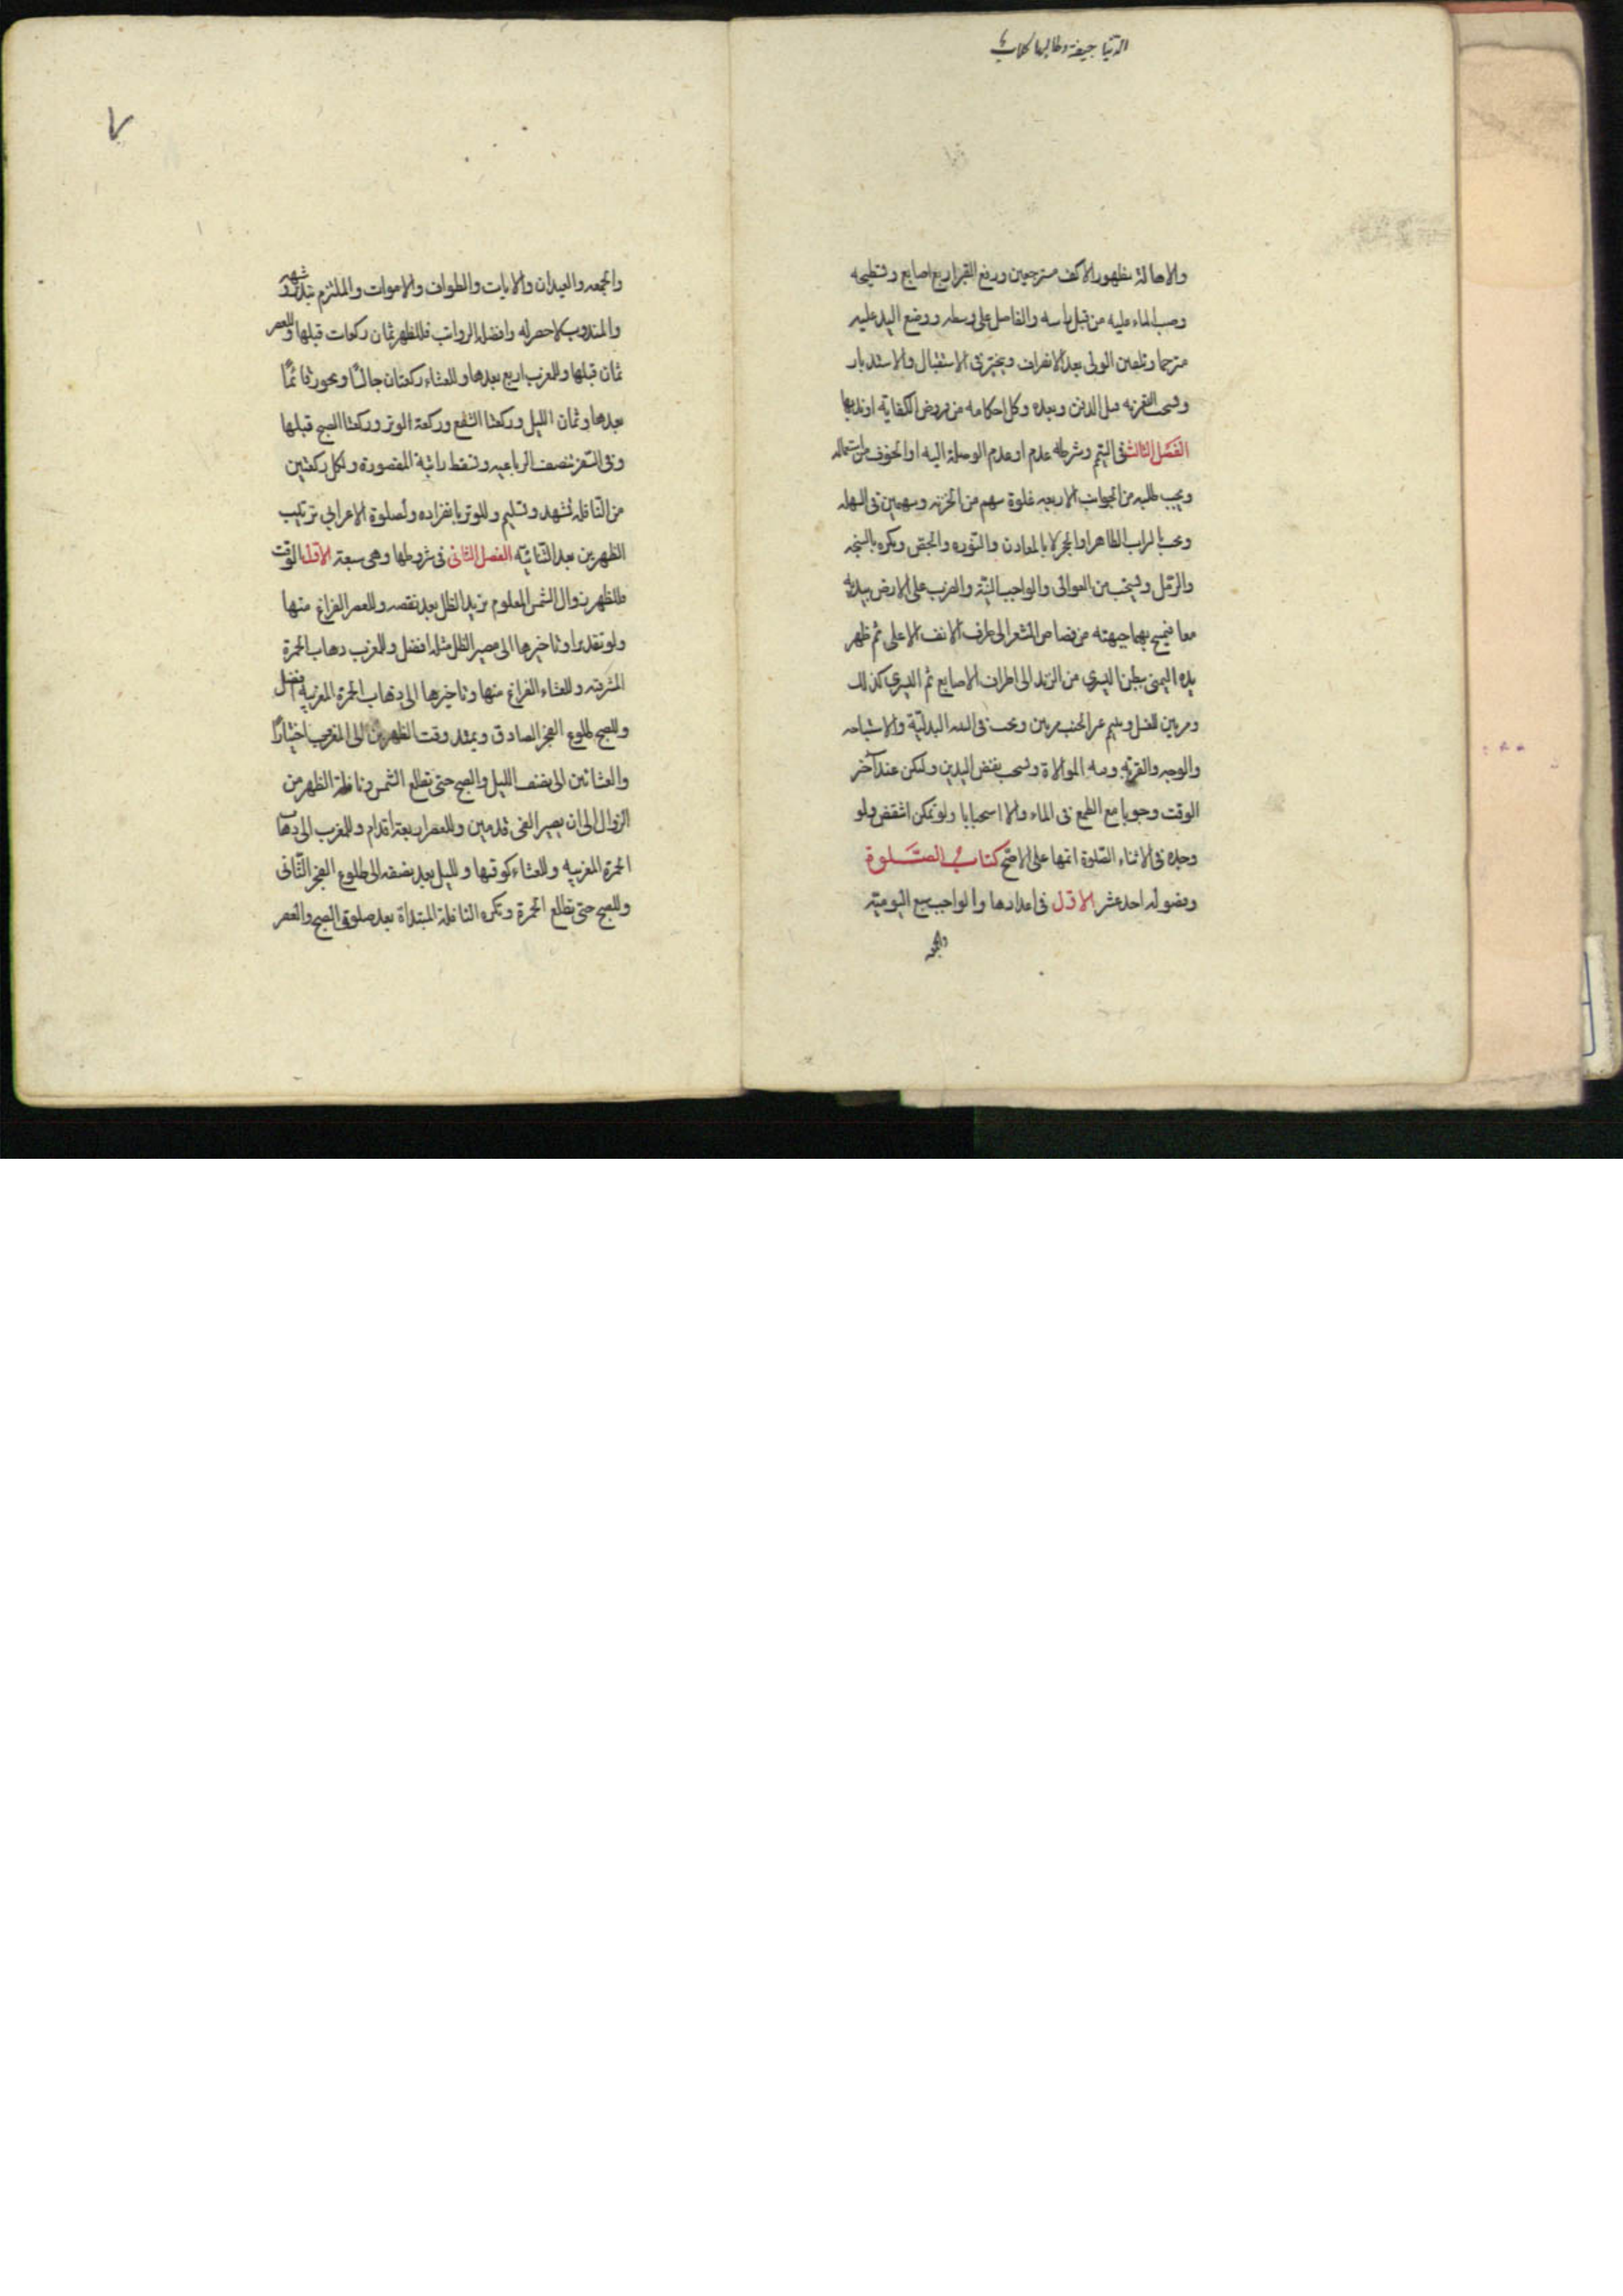 الدنيا جيفة وطالبها كلاب
والاهالة بظهور الاكف مسترجعين ورفع القبر اربع اصابع وتسطيحه
وصب الماء عليه من قبل راسه والفاضل على وسطه ووضع اليد عليه
مترحما وتلقين الولى بعد الانصراف ويتخير فى الاستقبال والاستدبار
ويستحب التعزيه قبل الدفن وبعده وكل احكامه من فروض الكفاية او ندبها
الفصل الثالث فى التيمم وشرطه عدم او عدم الوصلة اليه او الخوف من استعماله
ويجب طلبه من الجوانب الاربعه غلوة سهم من الحزنه وسهمين فى السهله
ويجب بالتراب الطاهر او الحجر لا بالمعادن والنوره والجص ويكره بالسبخه
والرمل ويستحب من العوالى والواجب النية والضرب على الارض بيديه
معا فيمسح بهما جبهته من قصاص الشعر الى طرف الانف الاعلى ثم ظهر
يده اليمنى ببطن اليسرى من الزند الى اطراف الاصابع ثم اليسرى كذلك
ومرتين للغسل ويتيمم غير الجنب مرتين ويجب فى النيه البدلية والاستباحه
والوجه والقربه وهنا الموالاة ويستحب نفض اليدين وليكن عند آخر
الوقت وجوبا مع الطمع فى الماء والا استحبابا ولو تمكن انتقض ولو
وجده فى الاثناء الصلوة اتمها على الاصح كتاب الصلوة
وفصوله احد عشر الاول فى اعدادها والواجب سبع اليومية
والجمعه
٧
والجمعه والعيدان والايات والطواف والاموات والملتزم بنذر وشبهه
والمندوب لا حصر له وافضله الرواتب فللظهر ثمان ركعات قبلها وللعصر
ثمان قبلها وللمغرب اربع بعدها وللعشاء ركعتان جالسًا ويجوز قائمًا
بعدها وثمان الليل وركعتا الشفع وركعة الوتر وركعتا الصبح قبلها
وفى السفر تنصف الرباعيه وتسقط راتبة المقصورة ولكل ركعتين
من النافله تشهد وتسليم وللوتر بانفراده ولصلوة الاعرابي ترتيب
الظهرين بعد الثنائية الفصل الثانى فى شروطها وهى سبعة الاول الوقت
فللظهر زوال الشمس المعلوم بزيد الظل بعد نقصه وللعصر الفراغ منها
ولو تقديرا وتاخيرها الى مصير الظل مثله افضل وللمغرب ذهاب الحمرة
المشرقيه وللعشاء الفراغ منها وتاخيرها الى ذهاب الحمرة المغربيه افضل
وللصبح طلوع الفجر الصادق ويمتد وقت الظهرين الى المغرب اختيارًا
والعشائين الى نصف الليل والصبح حتى تطلع الشمس ونافلة الظهر من
الزوال الى ان يصير الفى قدمين وللعصر اربعة اقدام وللمغرب الى ذهاب
الحمرة المغربيه وللعشاء كوقتها ولليل بعد نصفه الى طلوع الفجر الثانى
وللصبح حتى تطلع الحمرة وتكره النافلة المبتداة بعد صلوة الصبح والعصر